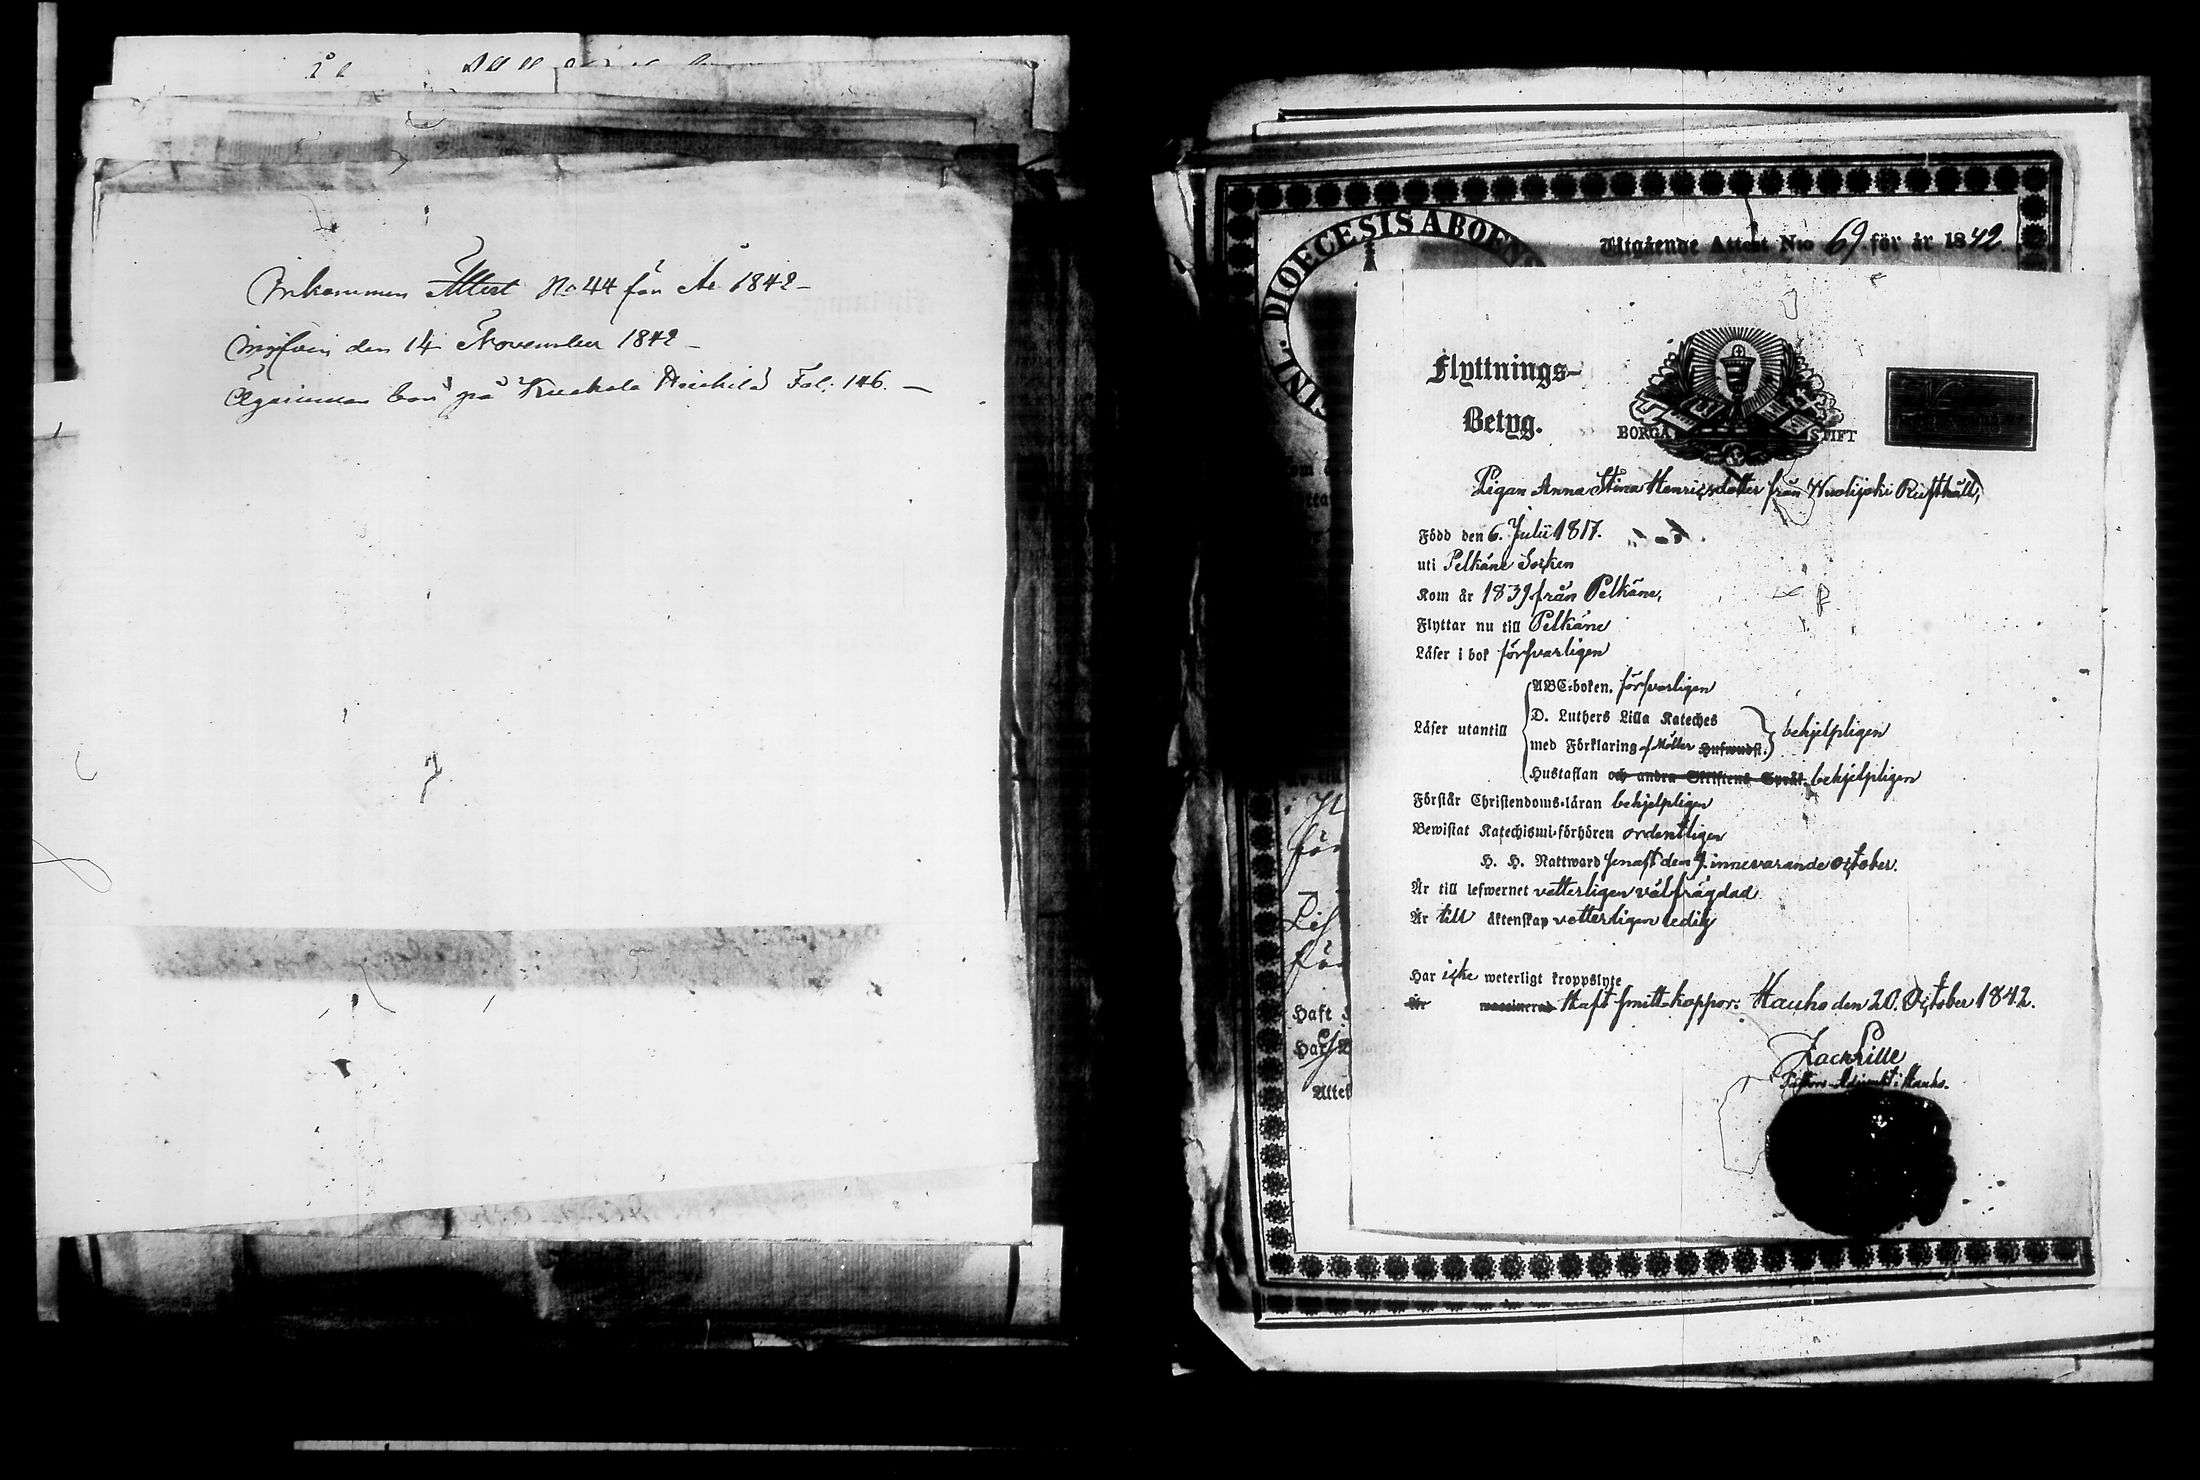 Inkommen Attest No 44 för År 1842 –
den 14 November 1842 –
på Fol: 146. –
DIOECESIS ABOENS
Utgående Attest No 69 för år 1842.
Flyttnings-
Betyg.
BORGÅ STIFT
Pigan Anna Stina Henricsdotter från Wuolijoki Rusthåll,
Född den 6. Julii 1817.
uti Pelkäne Socken
Kom år 1839 från Pelkäne,
Flyttar nu till Pelkäne
Läser i bok försvarligen
ABC-boken. försvarligen
Läser utantill D. Luthers Lilla Kateches
med Förklaring af Möller Hufwudst. behjelpligen
Hustaflan och andra Skriftens Språk. behjelpligen
Förstår Christendoms-läran behjelpligen
Bewistat Katechismi-förhören ordentligen
H. H. Nattward senast den 9. innevarande October.
Är till lefwernet vetterligen välfrägdad
Är till äktenskap vetterligen ledig
Har icke weterligt kroppslyte
Är vaccinerad Haft smittkoppor. Hauho den 20. October 1842.
Zach Lille
Pastors-Adjunct i Hauho.
för
för
Haft
Har
Attest